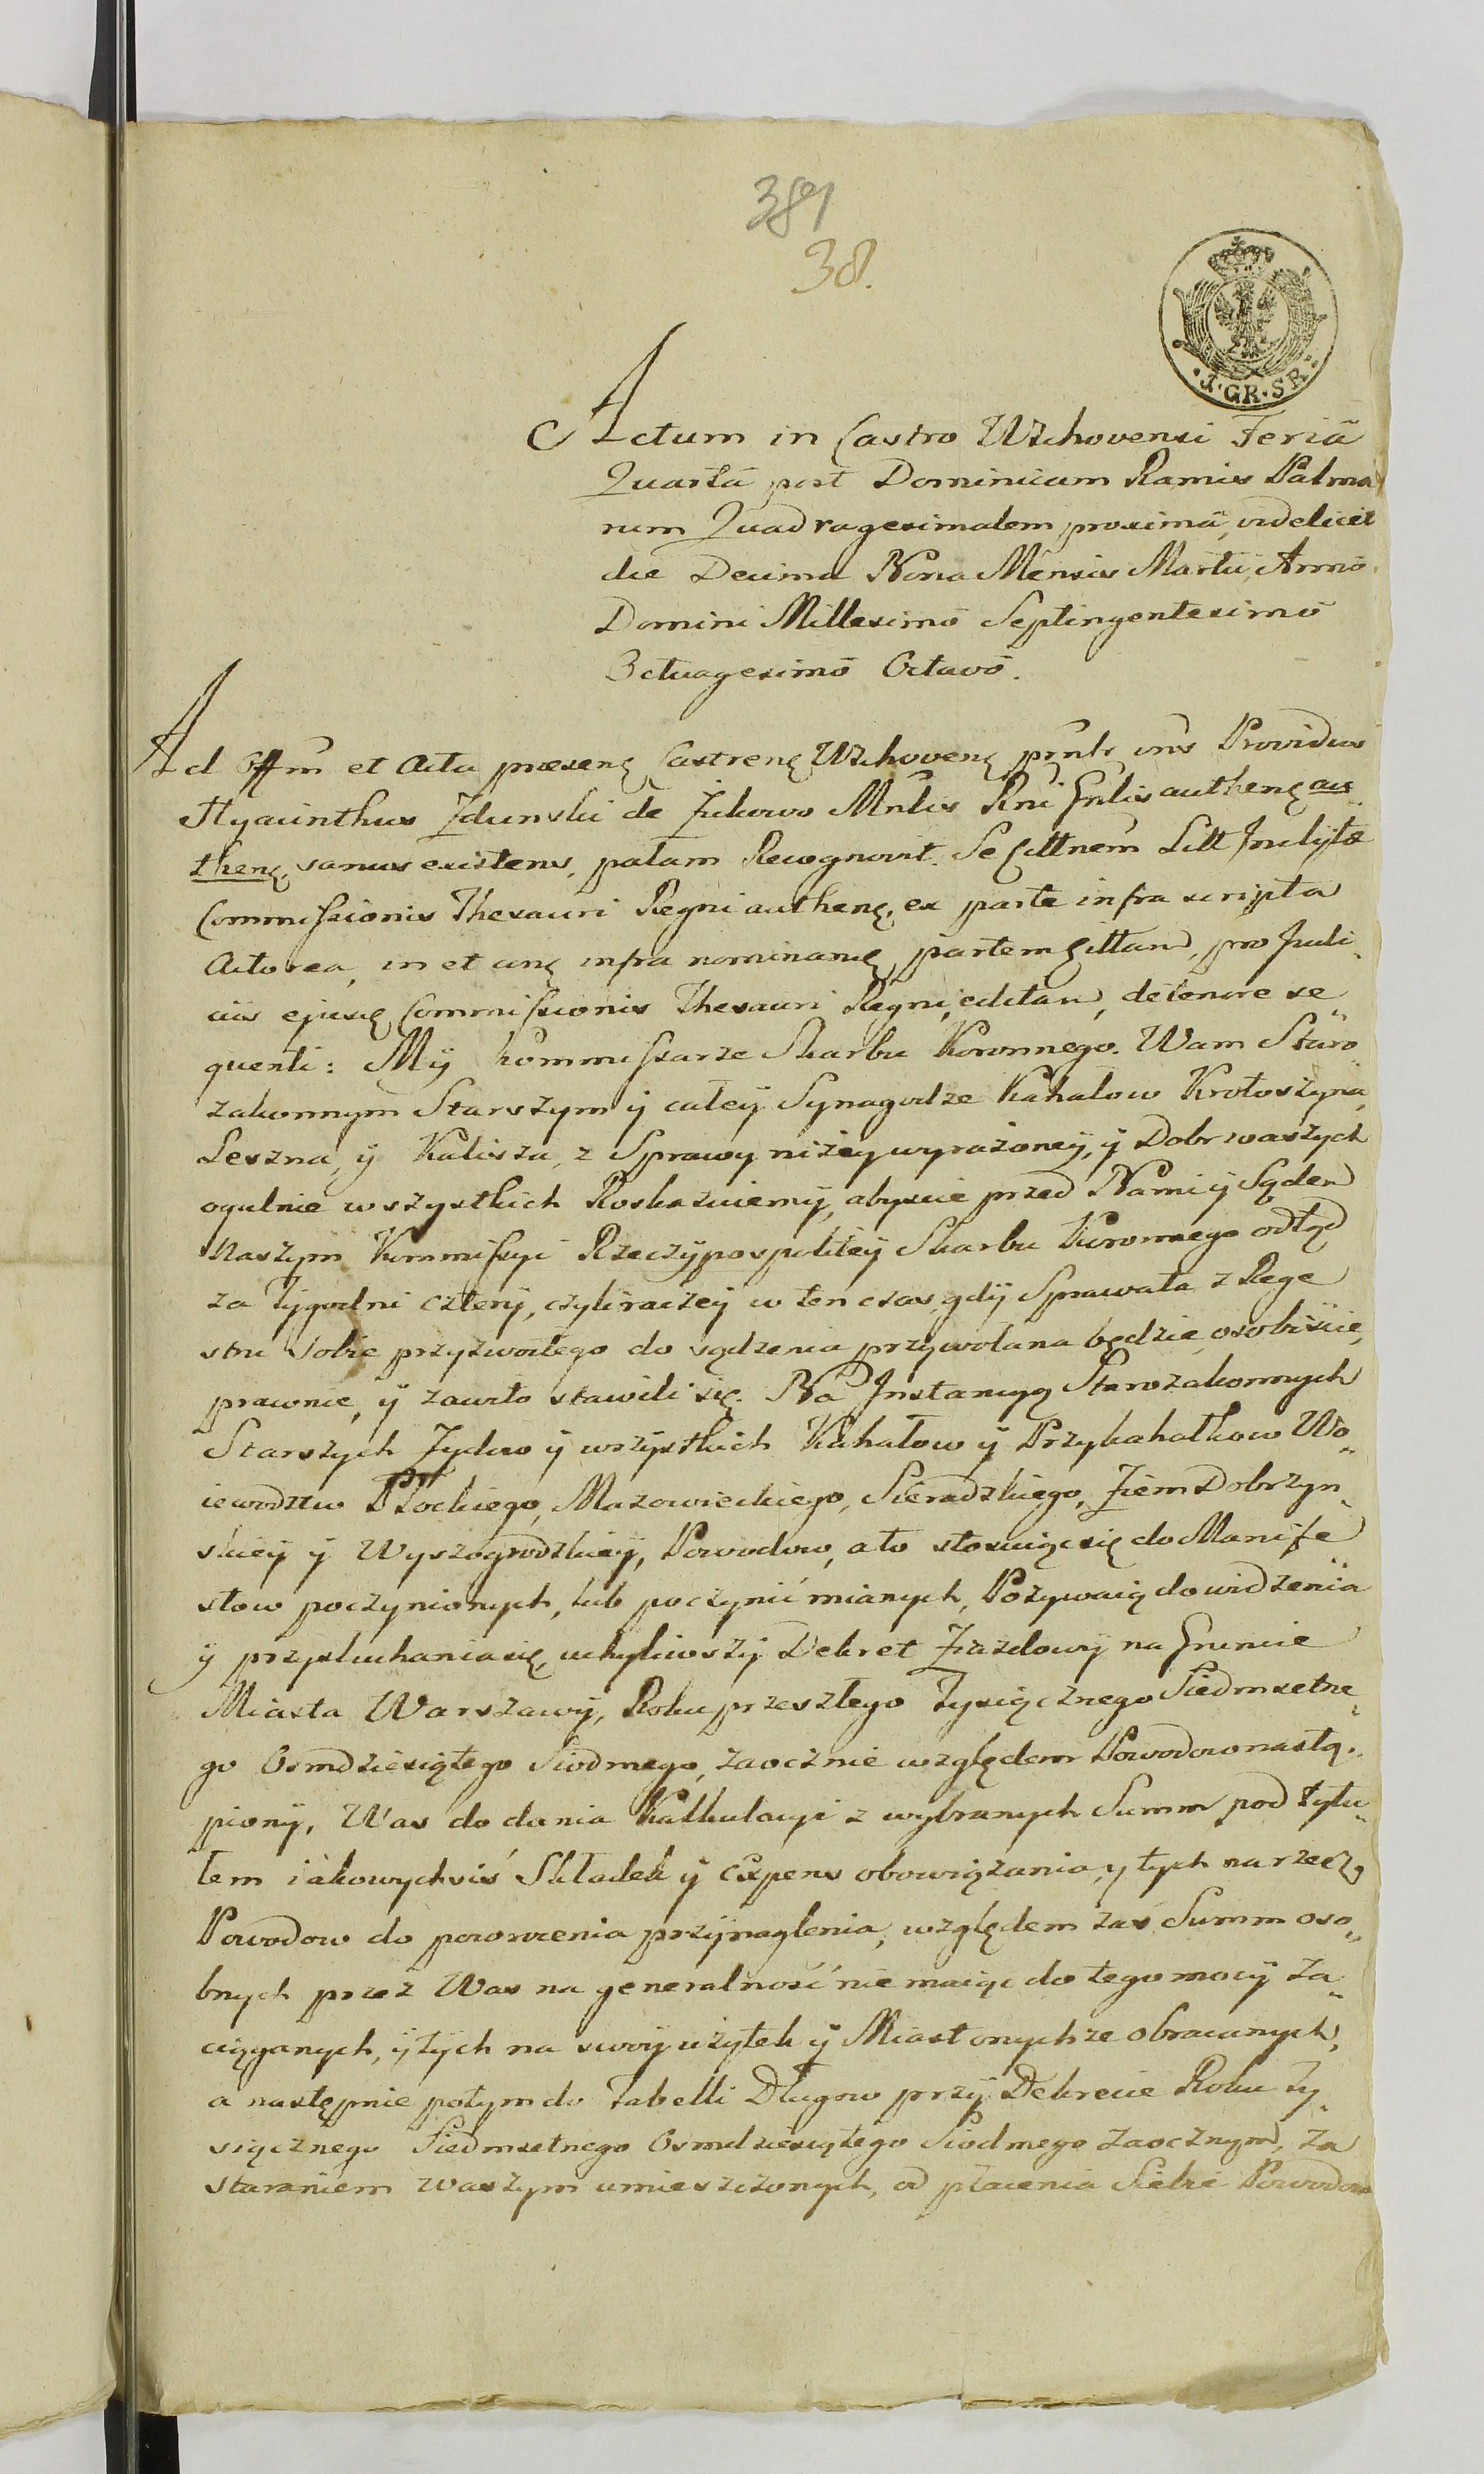 389
38.
1.GR.SR.
Actum in Castro Wschovensi Feriã
Quartâ post Dominicam Ramis Palma
rum Quadragesimalem proximâ, videlicet
die Decima Nona Mensis Martii, Anno
Domini Millesimô Septingentesimô
Octuagesimô Octavô.
Ad Offm̃ et Acta præsenς Castrenς Wschovenς p̃ntr v̈ns Providus
Hyacinthus Zdunski de Żukowo Mnlis Rni Gnlis authenς au
thenς, sanus existens, palam Recognovit. Se Cittnem̃ Litt Inclytæ
Commissionis Thesauri Regni authenς, ex parte infra scripta
Actorea, in et cunς infra nominanς partem Cittand, pro Judi
ciis ejusς Commissionis Thesauri Regni, edittan, de tenore se
quenti: Mÿ Kommissarze Skarbu Koronnego. Wam Staro
zakonnym Starszym ÿ całeÿ Synagodze Kahałow Krotoszyna,
Leszna, ÿ Kalisza, z Sprawy niżey wyrażoneÿ, ÿ Dobr waszych
ogulnie wszystkich Roskazuiemÿ, abyscie przed Nami ÿ Sądem
Naszym Kommissyi Rzeczÿpospoliteÿ Skarbu Koronnego odtąd
za Tÿgodni czterÿ, czyli raczeÿ w ten czas, gdÿ Sprawa ta z Rege
stru sobie przyzwoitego do sądzenia przywołana będzie, osobiście,
prawnie, ÿ zawito stawili się. Na Instancyą Starozakonnych
Starszych Zydow ÿ wszystkich Kahałow ÿ Przykahałkow Wo
iewodztw Płockiego, Mazowieckiego, Sieradzkiego, Ziem Dobrzyn
skieÿ ÿ Wyszogrodzkieÿ, Powodow, a to stosuiąc się do Manife
stow poczynionych, lub poczynić mianych, Pozywaią do widzenia
ÿ przysłuchania się, uchyliwszÿ Dekret Ziazdowÿ na Gruncie
Miasta Warszawÿ, Roku przeszłego Tysiącznego Siedmsetne
go Osmdziesiątego Siodmego, zaocznie względem Powodow nastą
pionÿ, Was do dania Kalkulacyi z wybranych Summ pod tytu
łem iakowychsiś Składek ÿ Expens obowiązania, ÿ tych na rzecz
Powodow do powrocenia przÿnaglenia, względem zaś Summ oso
bnych przez Was na generalność nie maiąc do tego mocÿ za
ciąganych, ÿ tÿch na swoÿ użytek ÿ Miast onychże obracanych,
a następnie potym do Tabelli Długow przÿ Dekrecie Roku Ty
siącznego Siedmsetnego Osmdziesiątego Siodmego zaocznym, za
staraniem waszym umieszczonych, od płacenia Siebie Powodow